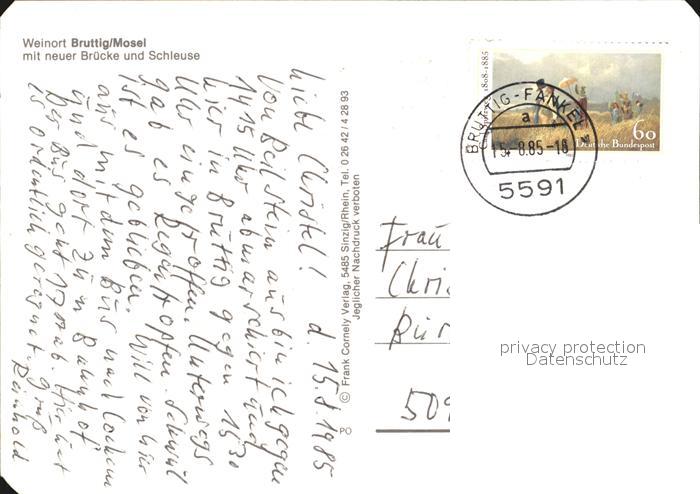 Weinort Bruttig/Mosel
mit neuer Brücke und Schleuse
d. 15.8.1985
Liebe Christel!
Von Beilstein aus bin ich gegen
14 15 Uhr abmarschiert und
hier in Bruttig gegen 15 30
Uhr eingetroffen. Unterwegs
gab es Regentropfen. Schwül
ist es geblieben. Will von hier
aus mit dem Bus nach Cochem
und dort zum Bahnhof.
Der Bus geht 17 ab. Hier hat
es ordentlich geregnet. Gruß
Reinhold
© Frank Cornely Verlag, 5485 Sinzig/Rhein, Tel. 0 26 42 / 4 28 93
Jeglicher Nachdruck verboten
PO
1808-1885
60
Deutsche Bundespost
BRUTTIG-FANKEL
a
15.-8.85-16
5591
Frau
Chri
Bür
509
privacy protection
Datenschutz